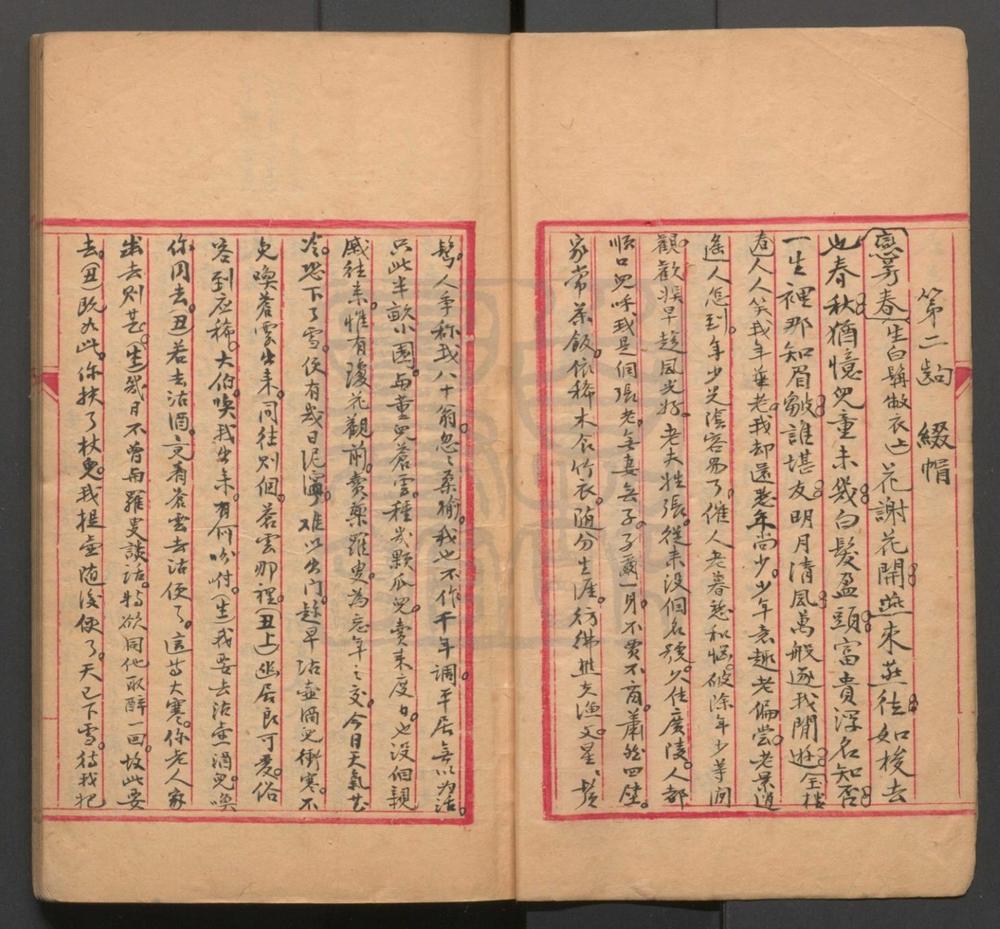 第二齣 綴帽
戀芳春(生白鬚敝衣上)花謝花開燕來燕往如梭去
也春秋猶憶兒童未幾白髮盈頭富貴浮名知否
一生裡那知眉皺誰堪友明月清風萬般逐我閒遊 全樓
春人人笑我年華老我却還老年尚少少年意趣老偏嘗老景過
遙人怎到年少光陰容易了催人老暮愁和惱破除年少等閒
觀歡娛早趁風光好老夫姓張從来没個名號久住廣陵人都
順口兒呼我是個張老無妻無子子爾一身不賈不商蕭然四壁
家常茶飯依稀木食竹衣随分生涯彷彿樵夫漁父星星鬢
髩人爭称我八十翁忽忽桑榆我也不作千年調平居無以為活
只此半畝小園與董兒蒼雲種幾顆瓜兒賣来度日也没個親
戚往来惟有瓊花觀前賣藥羅叟為忘年之交今日天氣甚
冷恐下了雪便有幾日泥濘难以出門趁早沽壺酒兒衝寒不
免喚蒼雲出来同往則個蒼雲那裡(丑上)幽居良可愛俗
客到应稀大伯喚我出来有何吩付(生)我要去沽壺酒兒喚
你同去(丑)若去沽酒只有蒼雲去沽便了這等大寒你老人家
出去則甚(生)幾日不曾與羅叟談話特欲同他取醉一回故此要
去(丑)既如此你扶了杖兒我提壺随後便了天已下雪待我把